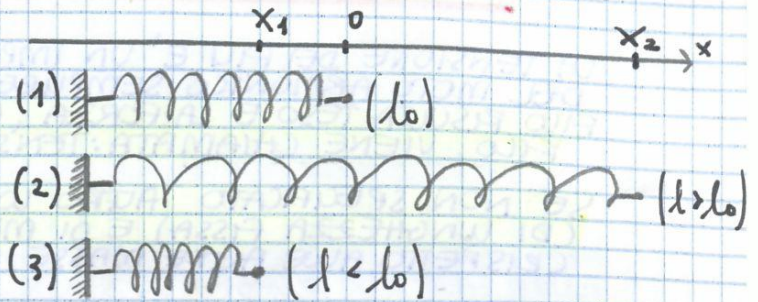 x₁ 0 x₂ x
(1) (l₀)
(2) (l>l₀)
(3) (l < l₀)